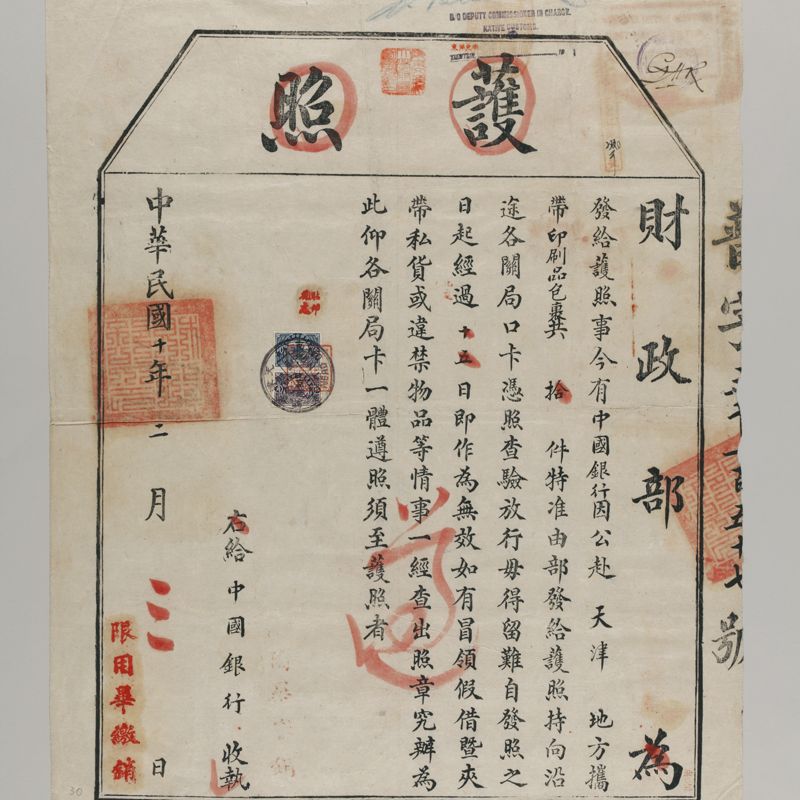 B/O DEPUTY COMMISSIONER IN CHARGE.
NATIVE CUSTOMS.
TIENTSIN
護照
財政部為
發給護照事今有中國銀行因公赴 天津 地方攜
帶印刷品包裹共 拾 件特准由部發給護照持向沿
途各關局口卡憑照查驗放行毋得留難自發照之
日起經過十五日即作為無效如有冒領假借暨夾
帶私貨或違禁物品等情事一經查出照章究辦為
此仰各關局卡一體遵照須至護照者
右給中國銀行收執
中華民國十年二月三日
限用畢繳銷
30